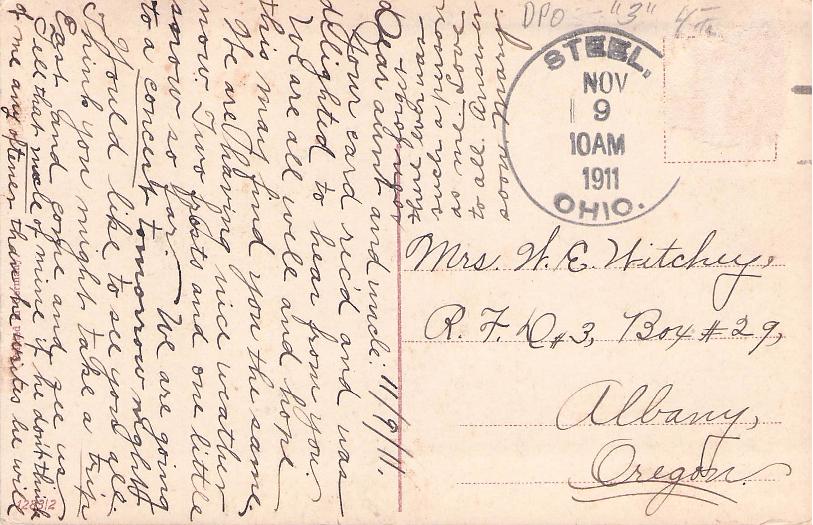 DPO - "3" 4th
STEEL,
NOV
9
10AM
1911
OHIO.
Mrs. W. E. Witchey,
R. F. D #3, Box #29,
Albany,
Oregon.
11/9/11.
Dear aunt and uncle:
Your card rec'd and was
delighted to hear from you.
We are all well and hope
this may find you the same.
We are having nice weather
now. Two frosts and one little
snow so far. We are going
to a concert tomorrow night
Would like to see you all.
Think you might take a trip
East and come and see us
Tell that male of mine if he don't think
of me any oftener than he writes he will
soon
to all
as we
12842